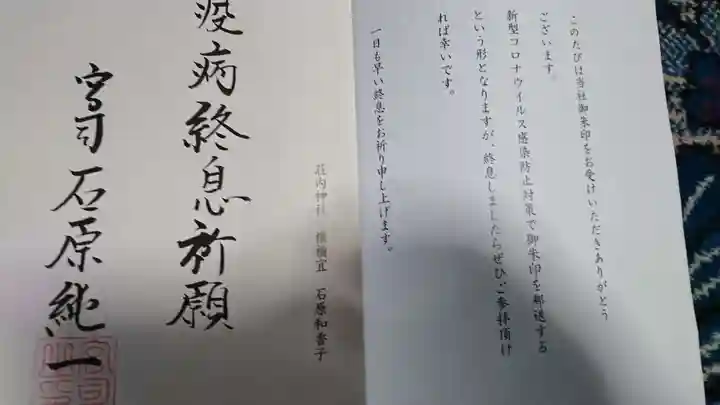 このたびは当社御朱印をお受けいただきありがとう
ございます。
新型コロナウイルス感染防止対策で御朱印を郵送する
という形となりますが、終息しましたらぜひご参拝頂け
れば幸いです。
一日も早い終息をお祈り申し上げます。
荘内神社 権禰宜 石原和香子
疫病終息祈願
宮司石原純一